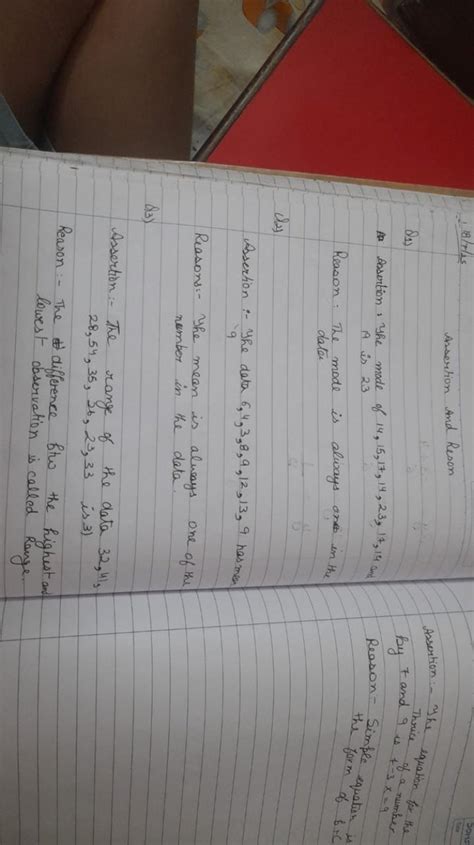 18/7/25
Assertion And Reson
Q1)
Assertion : The mode of 14, 15, 17, 14, 23, 17, 14 and
A is 23
Reason : The mode is always one in the
data.
Assertion :- The data 6, 4, 3, 8, 9, 12, 13, 9 has mean
9
Reasons:- The mean is always one of the
number in the data.
Q3)
Assertion :- The range of the data 32, 41,
28, 54, 35, 26, 23, 33 is 31
Reason :- The difference btw the highest and
lowest observation is called Range.
Assertion :- The equation for the
Thrice of a number
by 7 and 9 is 7-3x=9
Reason - Simple equation is
the form of